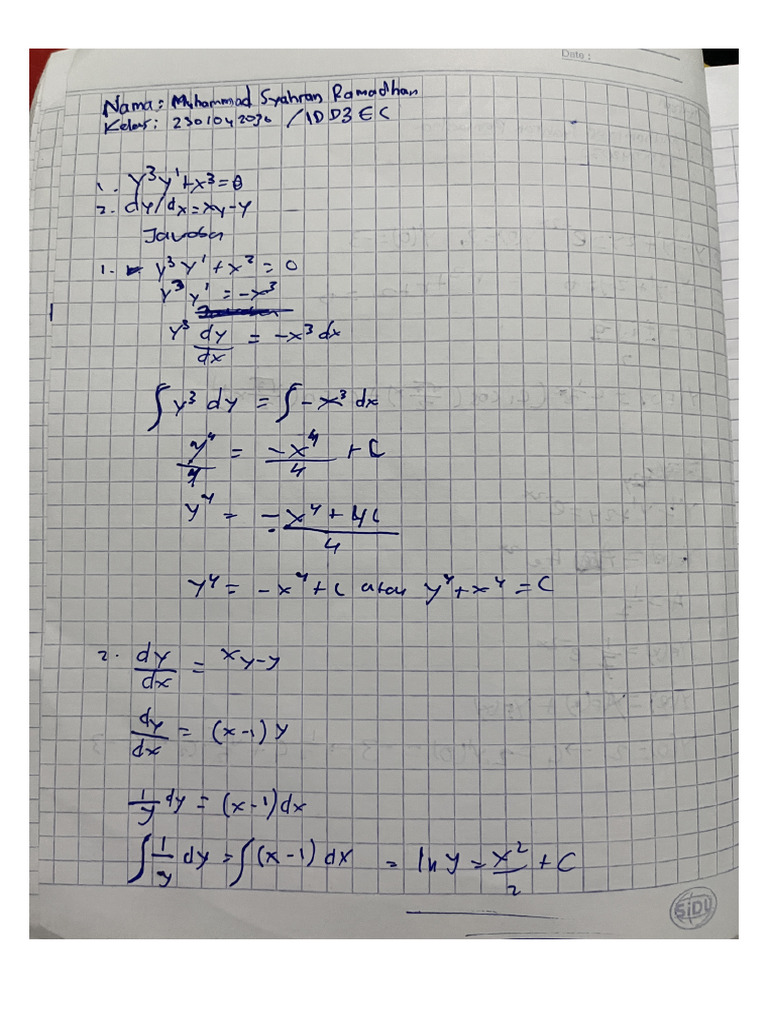 Date :
Nama: Muhammad Syahran Ramadhan
Kelas: 2301042030 /1DD3 EC
1. y³y'+x³=0
2. dy/dx=xy-y
Jawaban
1. y³ y' + x² = 0
y³ y' = -x³
y³ dy/dx = -x³ dx
∫ y³ dy = ∫ -x³ dx
y⁴/4 = -x⁴/4 + C
y⁴ = -x⁴ + 4C/4
y⁴ = -x⁴ + C atau y⁴ + x⁴ = C
2. dy/dx = xy-y
dy/dx = (x-1) y
1/y dy = (x-1) dx
∫ 1/y dy = ∫ (x-1) dx = ln y = x²/2 + C
SiDU